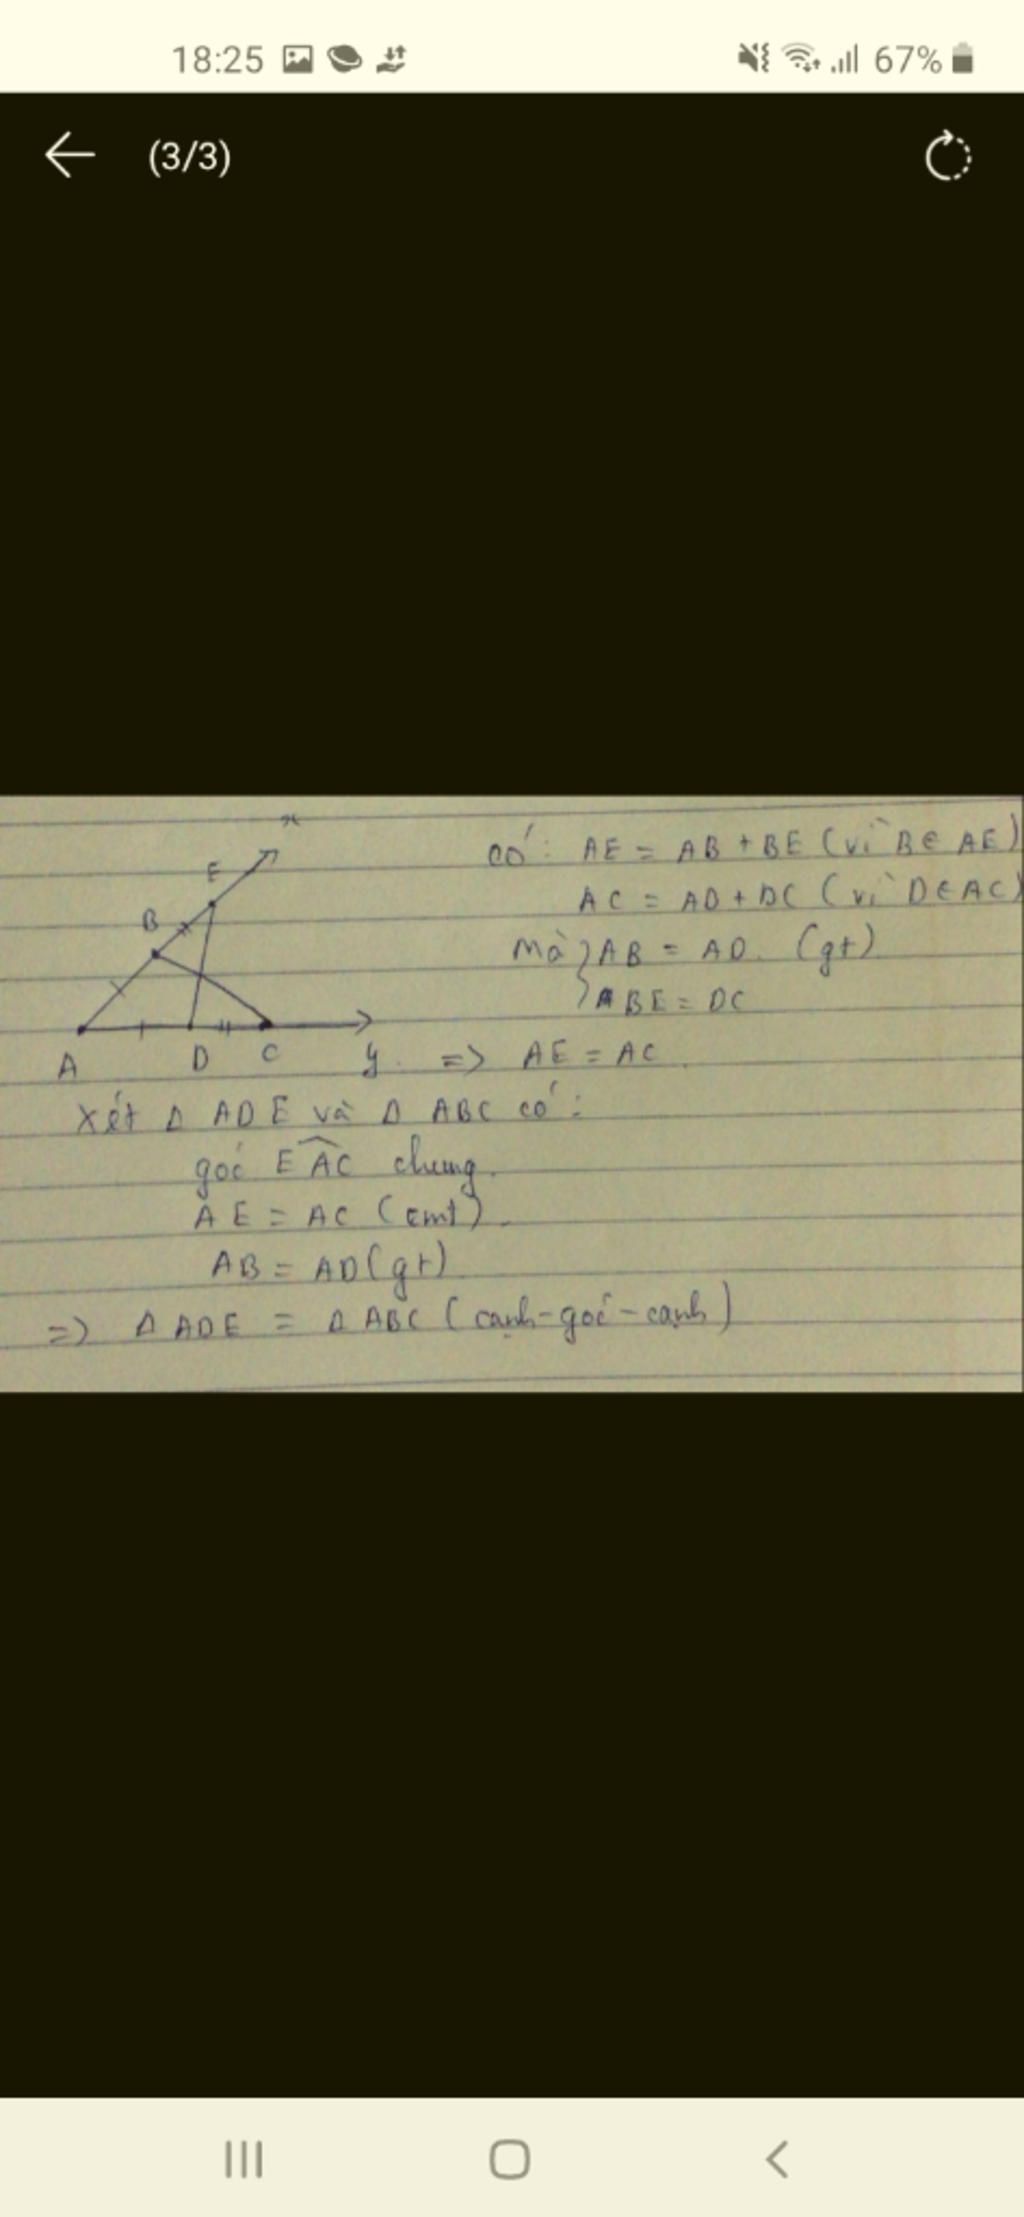 18:25 67%
(3/3)
x
E
B
A D C y
có: AE = AB + BE (vì B ∈ AE)
AC = AD + DC (vì D ∈ AC)
Mà } AB = AD. (gt)
} BE = DC
=> AE = AC.
Xét Δ ADE và Δ ABC có:
góc EAC chung.
AE = AC (cmt).
AB = AD (gt)
=> Δ ADE = Δ ABC (cạnh-góc-cạnh)